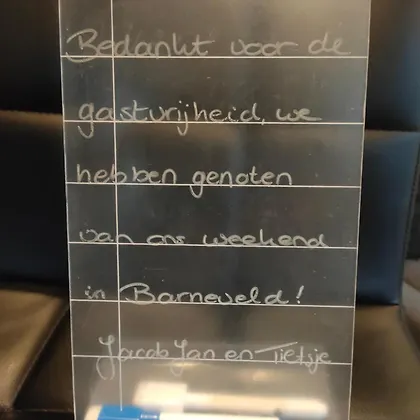 Bedankt voor de
gastvrijheid, we
hebben genoten
van ons weekend
in Barneveld!
Jacob Jan en Tietsje